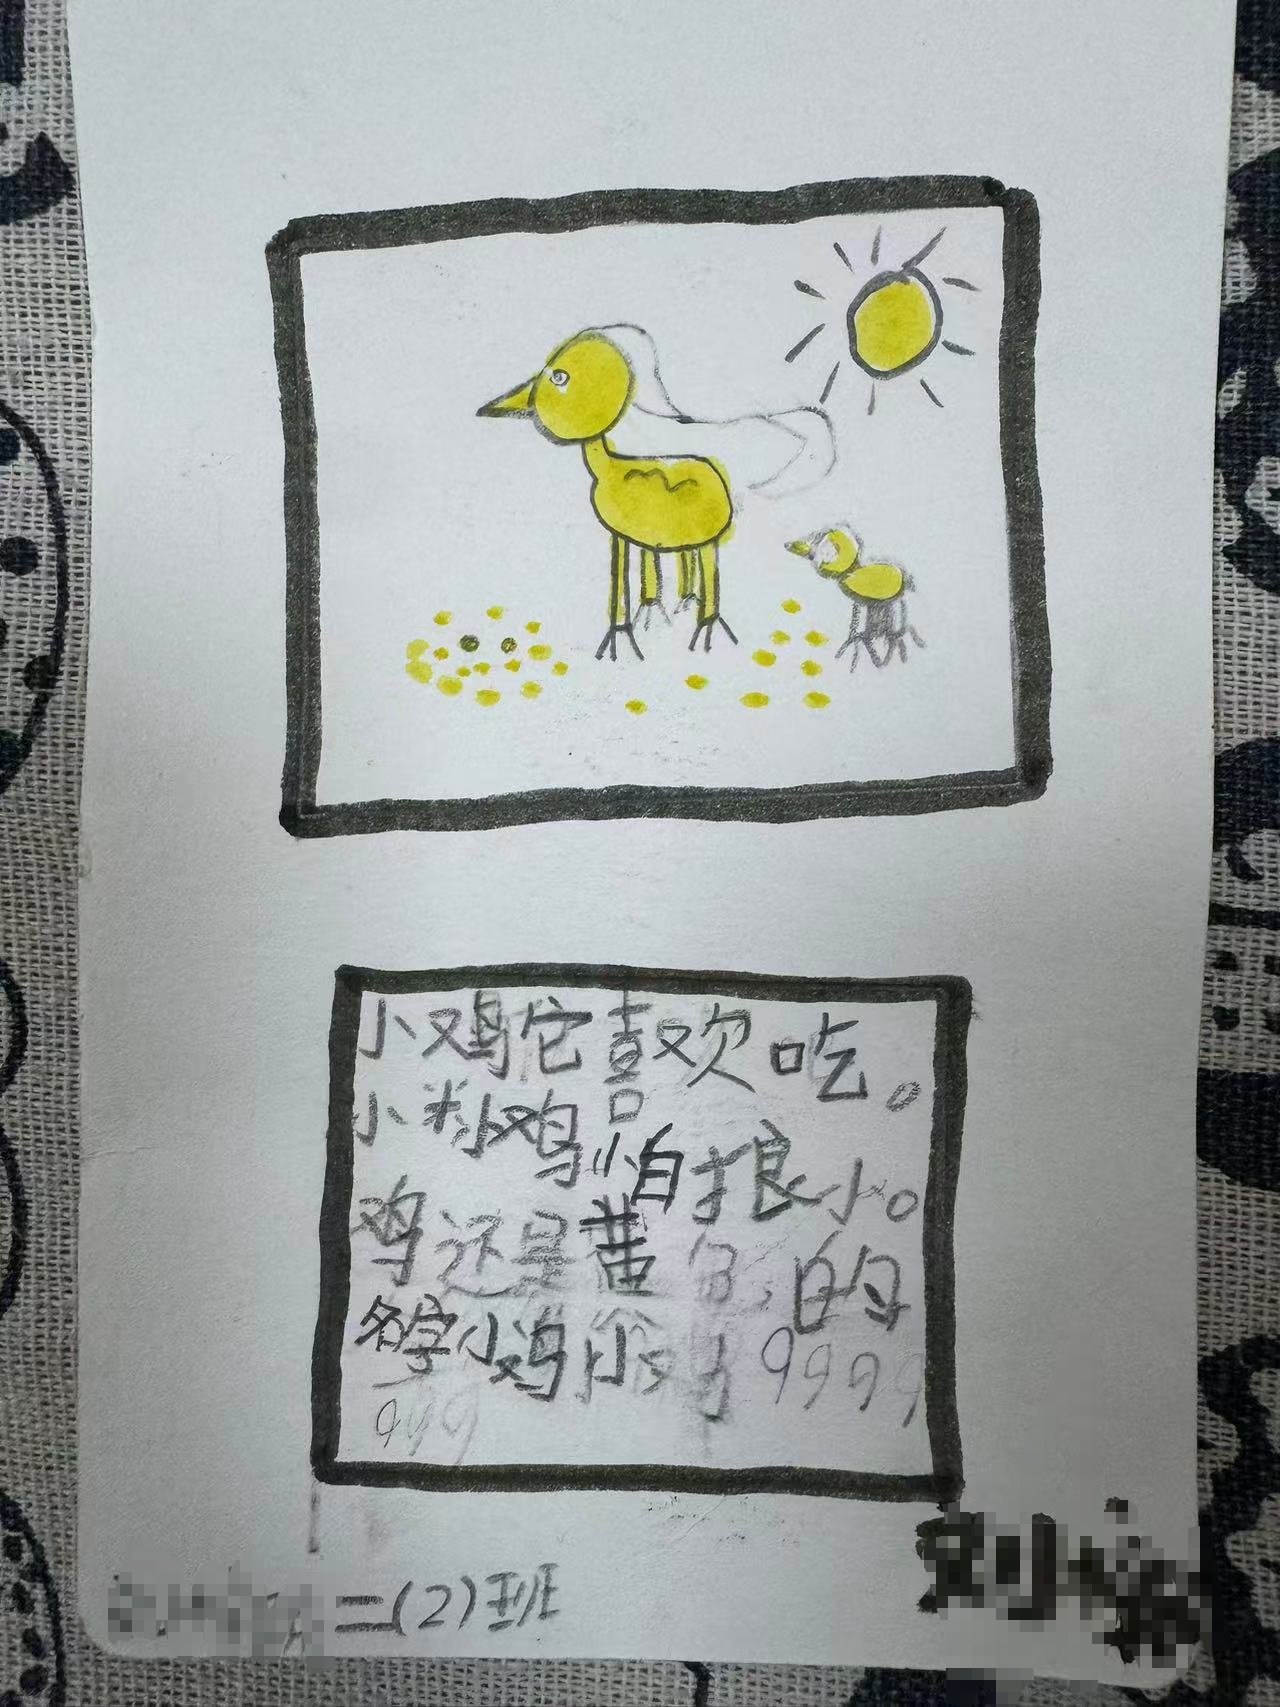 小鸡它喜欢吃。
小米小鸡怕狼小。
鸡还是黄色的
名字小鸡小
9999
999
二(2)班